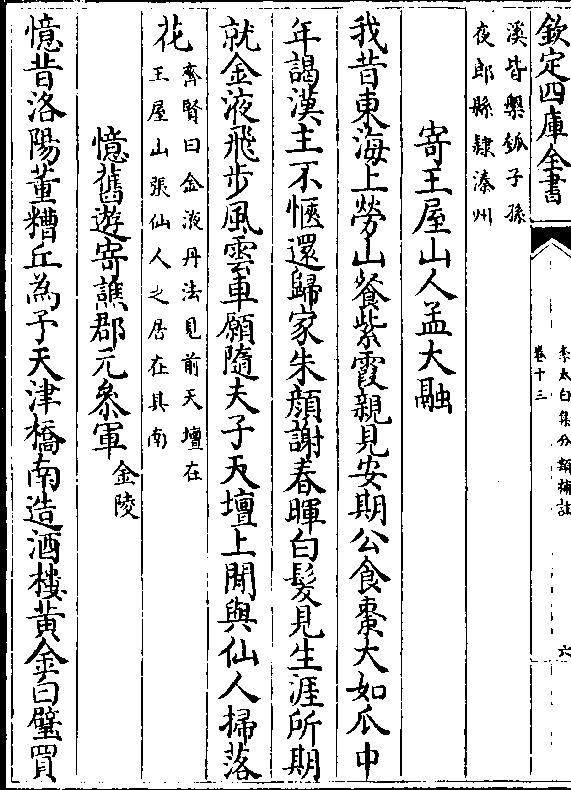 欽定四庫全書
李太白集分類補註
卷十三
六
溪皆槃瓠子孫
夜郎縣隸溱州
寄王屋山人孟大融
我昔東海上勞山餐紫霞親見安期公食棗大如瓜中
年謁漢主不愜還歸家朱顏謝春暉白髮見生涯所期
就金液飛步風雲車願隨夫子天壇上閒與仙人掃落
花
齊賢曰金液丹法見前天壇在
王屋山張仙人之居在其南
憶舊遊寄譙郡元參軍金陵
憶昔洛陽董糟丘為予天津橋南造酒樓黃金白璧買